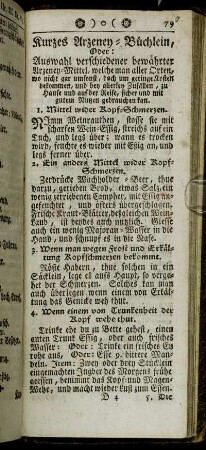 79
Kurzes Arzeney-Büchlein,
Oder:
Auswahl verschiedener bewährter
Arzeney-Mittel, welche man aller Orten,
wo nicht gar umsonst, doch um geringe Kosten
bekommen, und bey allerley Zufällen, zu
Hause und auf der Reise, sicher und mit
gutem Nutzen gebrauchen kan.
1. Mittel wider Kopf-Schmerzen.
Nimm Weinrauthen, stosse sie mit
scharfen Wein-Essig, streich's auf ein
Tuch, und legs über; wann es trocken
wird, feuchte es wieder mit Essig an, und
legs ferner über.
2. Ein anders Mittel wider Kopf-
Schmerzen.
Zerdrückte Wachholder-Beer, thue
darzu, gerieben Brod, etwas Salz, ein
wenig zerriebenen Campher, mit Essig an-
gefeuchtet, und öfters übergeschlagen.
Frische Kraut-Blätter, desgleichen Wein-
Laub, ist beydes auch nützlich. Giesse
auch ein wenig Majoran-Wasser in die
Hand, und schnupf es in die Nase.
3. Wenn man wegen Frost und Erkäl-
tung Kopfschmerzen bekommt.
Röste Habern, thue solchen in ein
Säcklein, lege es aufs Haupt, so verge-
het der Schmerzen. Solches kan man
auch überlegen wenn einem von Erkäl-
tung das Genicke weh thut.
4. Wenn einem von Trunkenheit der
Kopf wehe thut.
Trinke ehe du zu Bette gehest, einen
guten Trunk Essig, oder auch frisches
Wasser: Oder: Trinke ein frisches Ey
rohe aus. Oder: Esse 9. bittere Man-
deln. Item: Zwey oder drey Stücklein
eingemachten Ingber des Morgens frühe
gessen, benimmt das Kopf-und Magen-
Wehe, und macht wieder Lust zum Essen.
D 4 5. Die